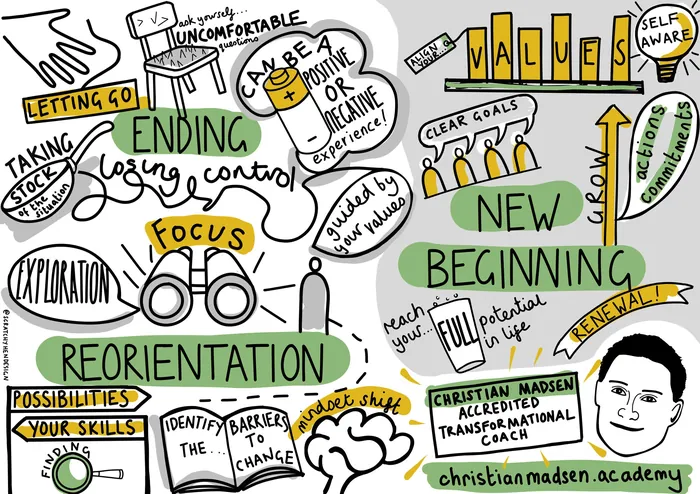 > √/ >
ask yourself...
UNCOMFORTABLE
questions
LETTING GO
ENDING
CAN BE A
+
POSITIVE
OR
NEGATIVE
-
experience!
TAKING
STOCK
of the
situation
losing control
guided by
your values
FOCUS
EXPLORATION
@SCRATCHYHENDESIGN
REORIENTATION
POSSIBILITIES
YOUR SKILLS
FINDING
IDENTIFY
THE...
BARRIERS
TO
CHANGE
mindset shift
ALIGN
YOUR...
VALUES
SELF
AWARE
CLEAR GOALS
GROW
actions
commitments
NEW
BEGINNING
reach
your...
FULL
potential
in life
RENEWAL!
CHRISTIAN MADSEN
ACCREDITED
TRANSFORMATIONAL
COACH
christianmadsen.academy